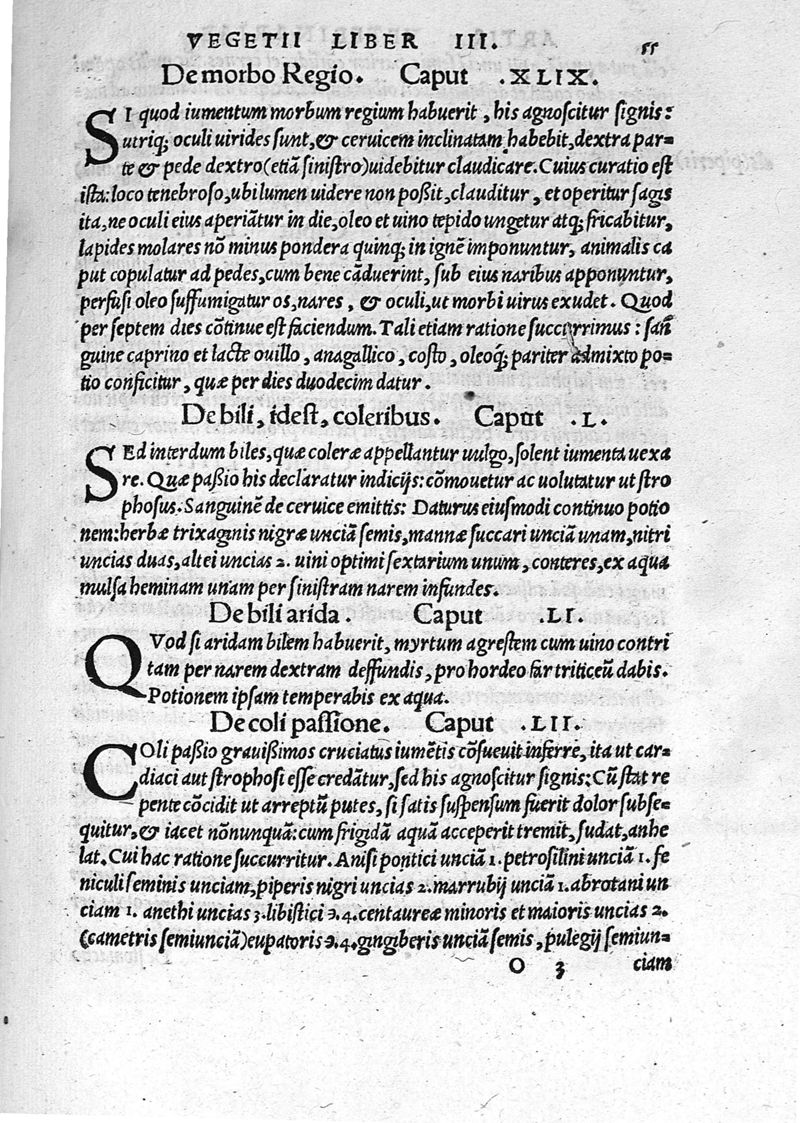 VEGETII LIBER III. 55
De morbo Regio. Caput .XLIX.
SI quod iumentum morbum regium habuerit, his agnoscitur signis:
utriq; oculi uirides sunt,& ceruicem inclinatam habebit,dextra par=
te & pede dextro(etiã sinistro)uidebitur claudicare.Cuius curatio est
ista:loco tenebroso,ubi lumen uidere non poßit,clauditur, et operitur sagis
ita,ne oculi eius aperiãtur in die,oleo et uino tepido ungetur atq; fricabitur,
lapides molares nõ minus pondera quinq; in ignẽ imponuntur, animalis ca
put copulatur ad pedes,cum bene cãduerint, sub eius naribus apponuntur,
perfusi oleo suffumigatur os,nares, & oculi,ut morbi uirus exudet. Quod
per septem dies cõtinue est faciendum.Tali etiam ratione succurrimus: san
guine caprino et lacte ouillo, anagallico, costo, oleoq; pariter admixto po=
tio conficitur, quæ per dies duodecim datur.
De bili, idest, coleribus. Caput .L.
SEd interdum biles,quæ coleræ appellantur uulgo,solent iumenta uexa
re. Quæ paßio his declaratur indicijs: cõmouetur ac uolutatur ut stro
phosus.Sanguinẽ de ceruice emittis: Daturus eiusmodi continuo potio
nem:herbæ trixaginis nigræ unciã semis,mannæ succari unciã unam,nitri
uncias duas,altei uncias 2. uini optimi sextarium unum, conteres,ex aqua
mulsa heminam unam per sinistram narem infundes.
De bili arida. Caput .LI.
QVod si aridam bilem habuerit, myrtum agrestem cum uino contri
tam per narem dextram deffundis, pro hordeo far triticeũ dabis.
Potionem ipsam temperabis ex aqua.
De coli passione. Caput .LII.
COli paßio grauißimos cruciatus iumẽtis cõsueuit inferre, ita ut car=
diaci aut strophosi esse credãtur,sed his agnoscitur signis: Cũ stat re
pente cõcidit ut arreptũ putes, si satis suspensum fuerit dolor subse=
quitur,& iacet nõnunquã:cum frigidã aquã acceperit tremit,sudat,anhe
lat. Cui hac ratione succurritur. Anisi pontici unciã 1. petrosilini unciã 1. fe
niculi seminis unciam,piperis nigri uncias 2. marrubij unciã 1. abrotani un
ciam 1. anethi uncias 3. libistici ℈.4. centaureæ minoris et maioris uncias 2.
(cametris semiunciã)eupatoris ℈.4. gingiberis unciã semis, pulegij semiun=
O 3 ciam